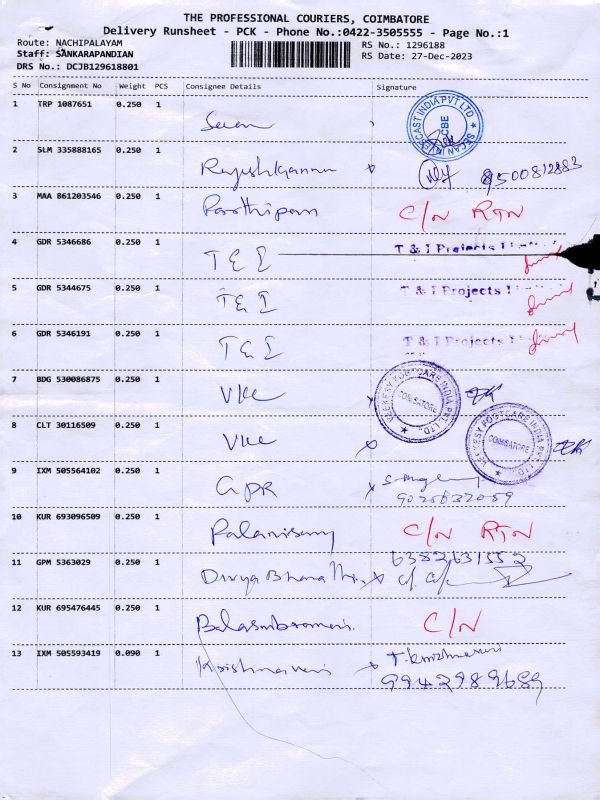 THE PROFESSIONAL COURIERS, COIMBATORE
Delivery Runsheet - PCK - Phone No.:0422-3505555 - Page No.:1
Route: NACHIPALAYAM
RS No.: 1296188
Staff: SANKARAPANDIAN
RS Date: 27-Dec-2023
DRS No.: DCJB129618801
S No Consignment No Weight PCS Consignee Details Signature
1 TRP 1087651 0.250 1
SECAN INVESCAST INDIA PVT LTD CBE
2 SLM 335888165 0.250 1 9500812883
3 MAA 861203546 0.250 1 Parthipan C/N RTN
4 GDR 5346686 0.250 1 T & I T & I Projects
5 GDR 5344675 0.250 1 T & I T & I Projects
6 GDR 5346191 0.250 1 T & I T & I Projects
7 BDG 530086875 0.250 1 VKC
VEEKESY POSTCARE INDIA PVT LTD., COIMBATORE
8 CLT 30116509 0.250 1 VKC
VEEKESY POSTCARE INDIA PVT LTD., COIMBATORE
9 IXM 505564102 0.250 1 GPR
10 KUR 693096509 0.250 1 Palanisamy C/N RTN
11 GPM 5363029 0.250 1 Divya Bharathi 6382631552
12 KUR 695476445 0.250 1 C/N
13 IXM 505593419 0.090 1 Krishnaveni
9942989689